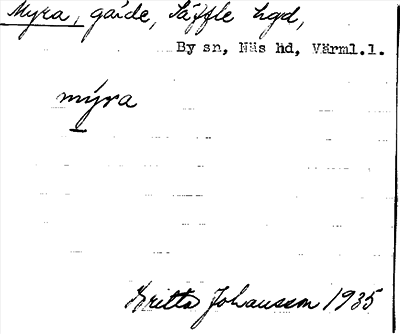 Myra, gårde, Säffle hgd,
By sn, Näs hd, Värml.l.
mýra
Britta Johansson 1935